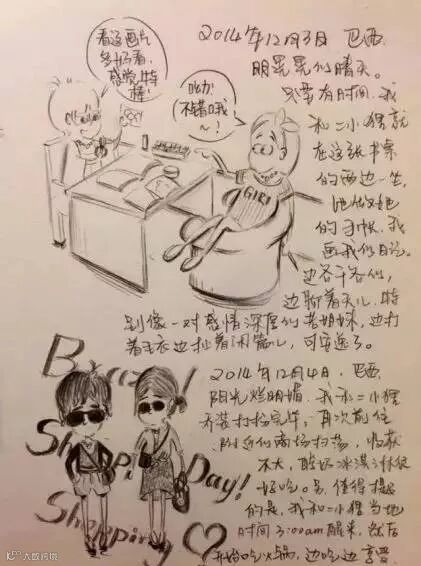 看这画片
多好看,
感觉特
棒!
哟!
不错哦
~!
GIRL
2014年12月3日 巴西.
明晃晃的晴天。
只要有时间,我
和二小狸就
在这张书桌
的两边一坐,
她做她
的手帐,我
画我的日记。
边各干各的,
边聊着天儿.特
别像一对感情深厚的老姐妹,边打
着毛衣边扯着闲篇儿,可安逸了。
2014年12月4日,巴西.
阳光灿烂明媚,我和二小狸
夯装打扮完毕,再次前往
附近的商场扫荡,收获
不大,酸奶冰淇淋很
好吃。另,值得提
的是,我和二小狸当地
时间3:00am醒来,然后
开始吃火锅,边吃边享受
Brazil
Shoppi Day!
Shopping
大数跨境